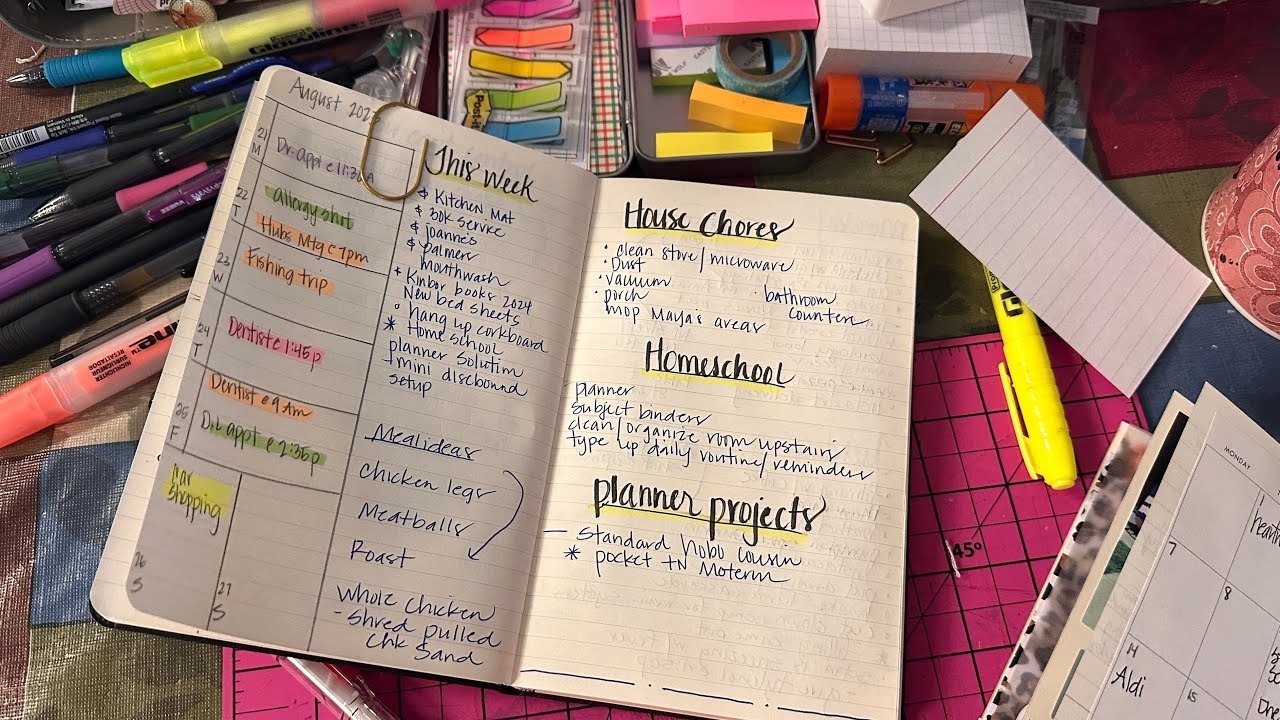 August 202
21
M
Dr. Appt @ 11:30A
22
T
allergy shot
Hubs Mtg @ 7pm
23
W
Fishing trip
24
T
Dentist @ 1:45p
25
F
Dentist @ 9 Am
Dr. appt @ 2:30p
Car
Shopping
26
S
27
S
This Week
& Kitchen Mat
& 30k service
& Joanne's
& palmers
mouthwash
Kinbor books 2024
New bed sheets
hang up corkboard
* Home School
planner solution
mini discbound
setup
Meal ideas
chicken legs
Meatballs
Roast
Whole Chicken
- Shred pulled
Chk Sand
House Chores
• clean stove/microwave
• Dust
• Vacuum
• porch
mop Maya's areas
• bathroom
counters
Homeschool
planner
subject binders
clean/organize room upstairs
type up daily routine/reminders
planner projects
— Standard hobo cousin
* pocket TN Moterm
45°
Post-it
MONDAY
7
8
14
Aldi
15